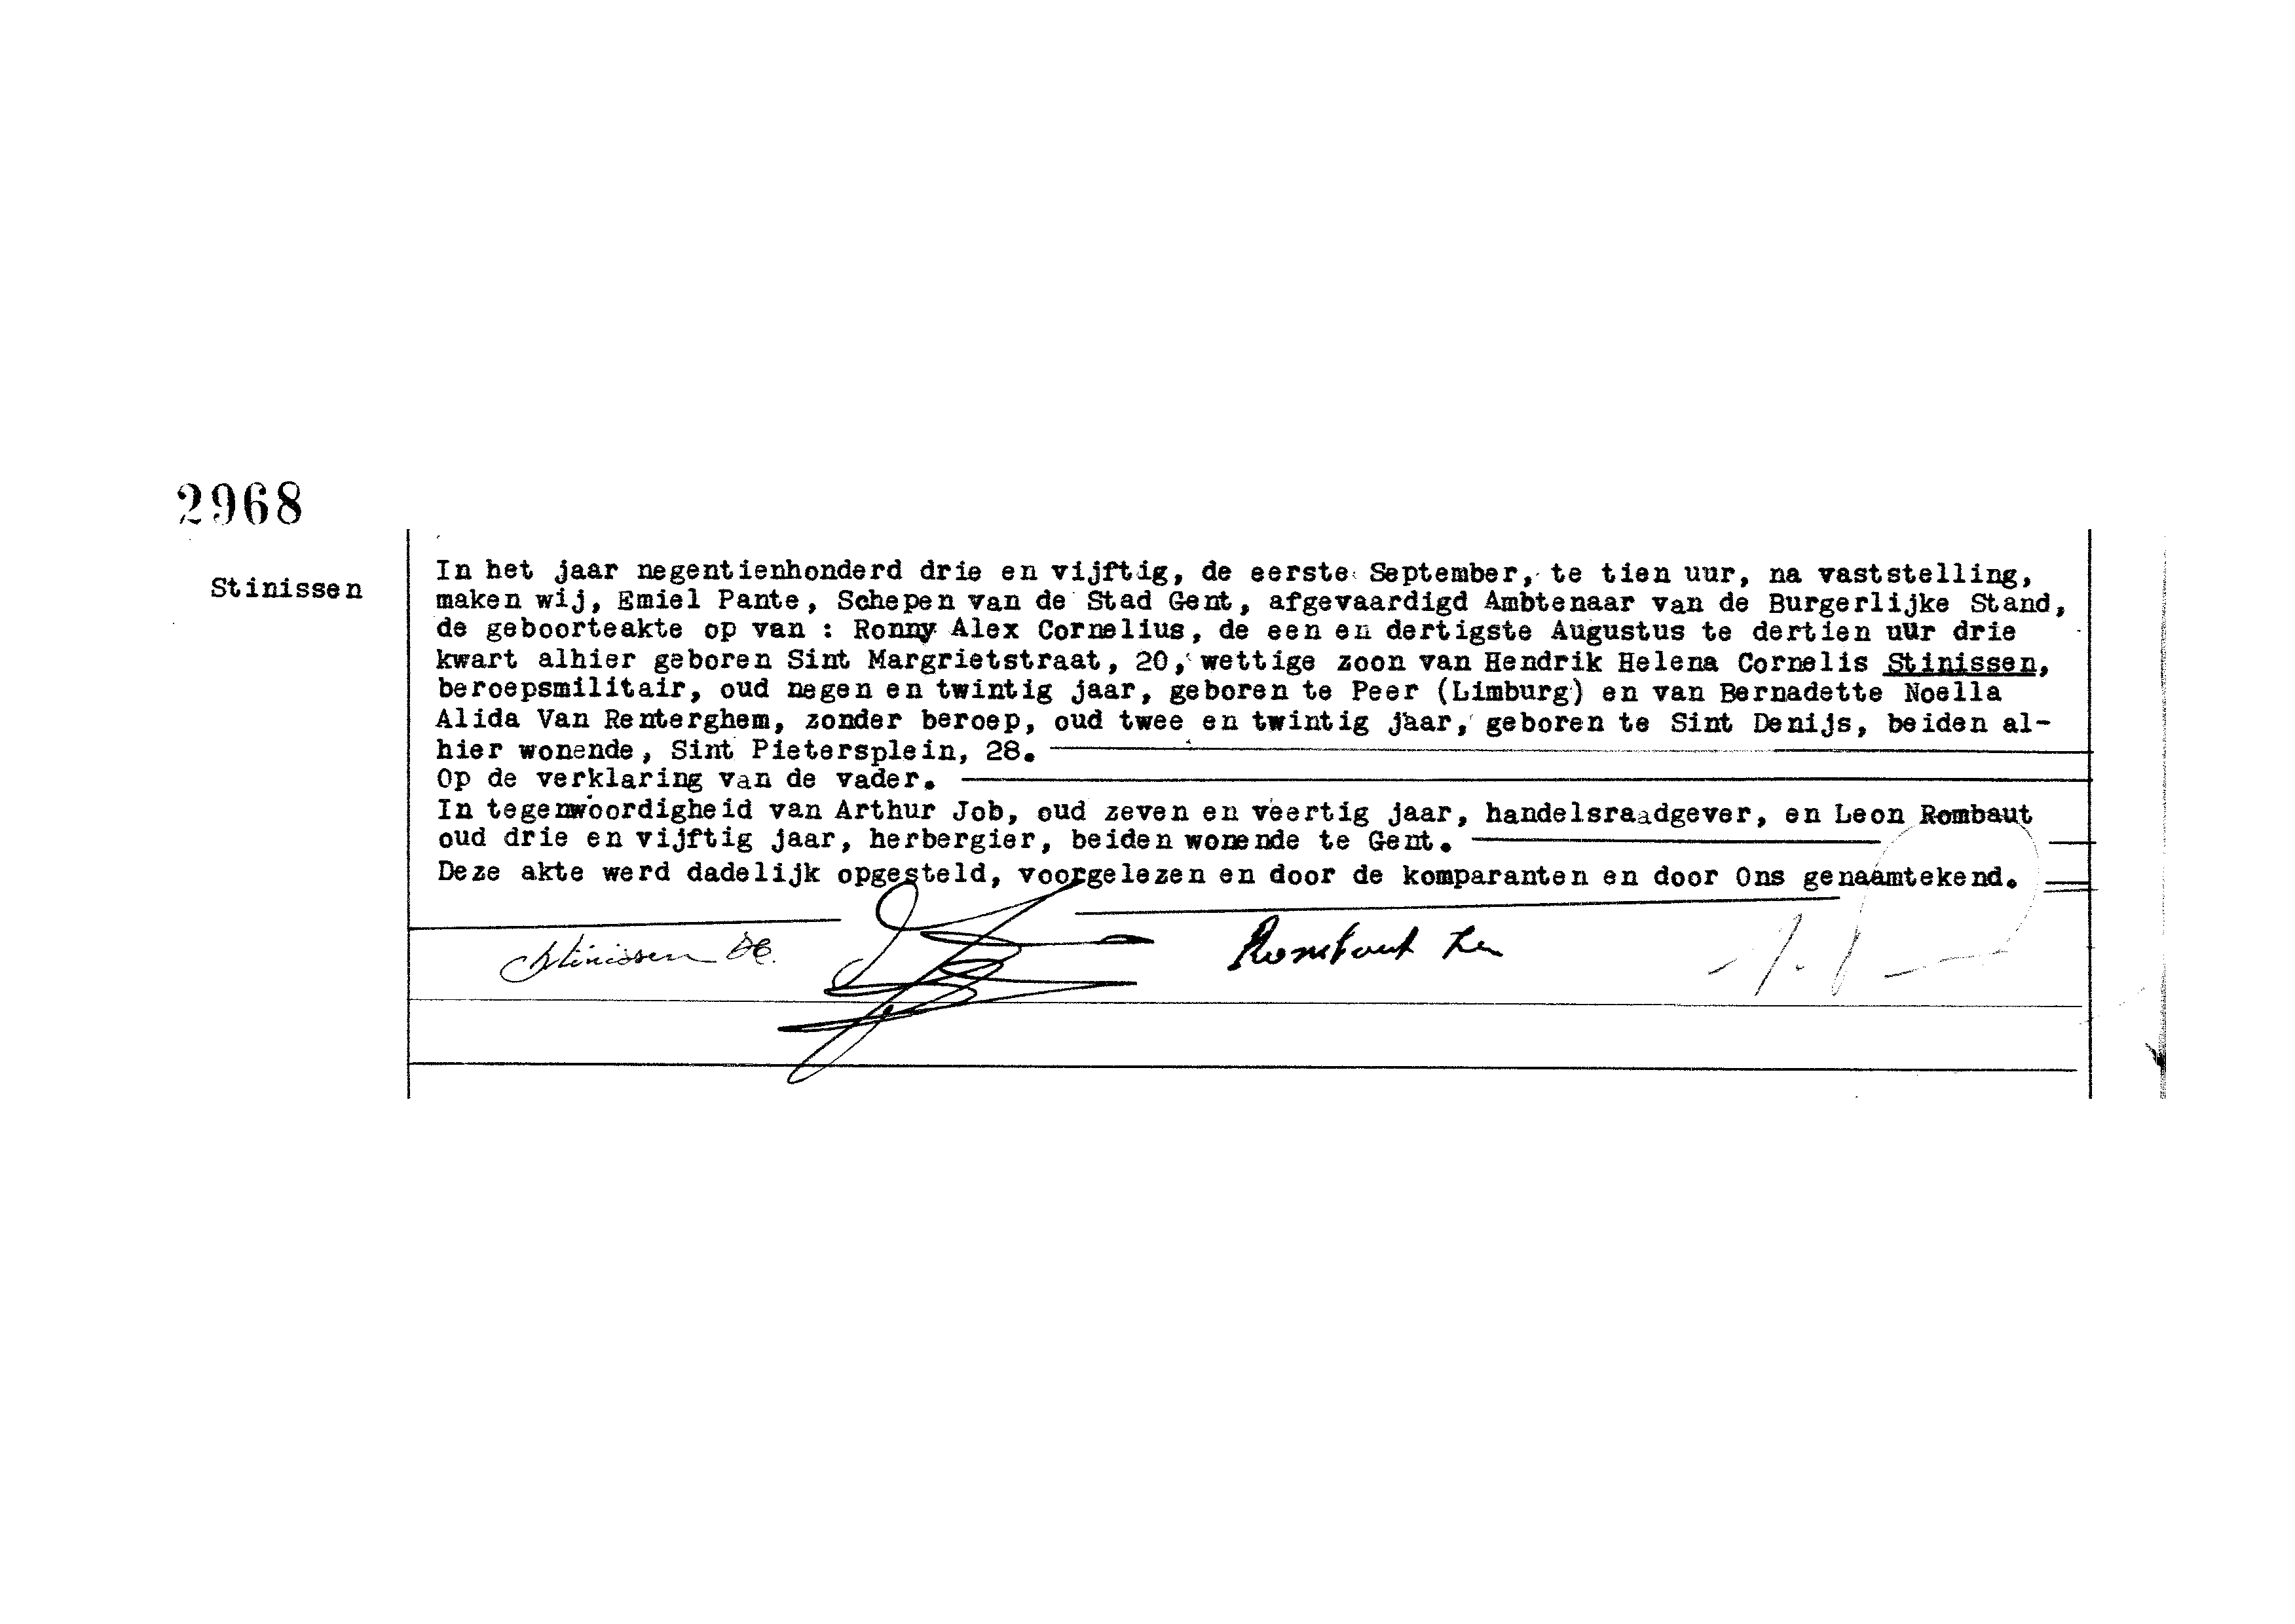 2968
Stinissen
In het jaar negentienhonderd drie en vijftig, de eerste September, te tien uur, na vaststelling,
maken wij, Emiel Pante, Schepen van de Stad Gent, afgevaardigd Ambtenaar van de Burgerlijke Stand,
de geboorteakte op van : Ronny Alex Cornelius, de een en dertigste Augustus te dertien uur drie
kwart alhier geboren Sint Margrietstraat, 20, wettige zoon van Hendrik Helena Cornelis Stinissen,
beroepsmilitair, oud negen en twintig jaar, geboren te Peer (Limburg) en van Bernadette Noella
Alida Van Renterghem, zonder beroep, oud twee en twintig jaar, geboren te Sint Denijs, beiden al-
hier wonende, Sint Pietersplein, 28.
Op de verklaring van de vader.
In tegenwoordigheid van Arthur Job, oud zeven en veertig jaar, handelsraadgever, en Leon Rombaut
oud drie en vijftig jaar, herbergier, beiden wonende te Gent.
Deze akte werd dadelijk opgesteld, voorgelezen en door de komparanten en door Ons genaamtekend.
Stinissen
Rombaut